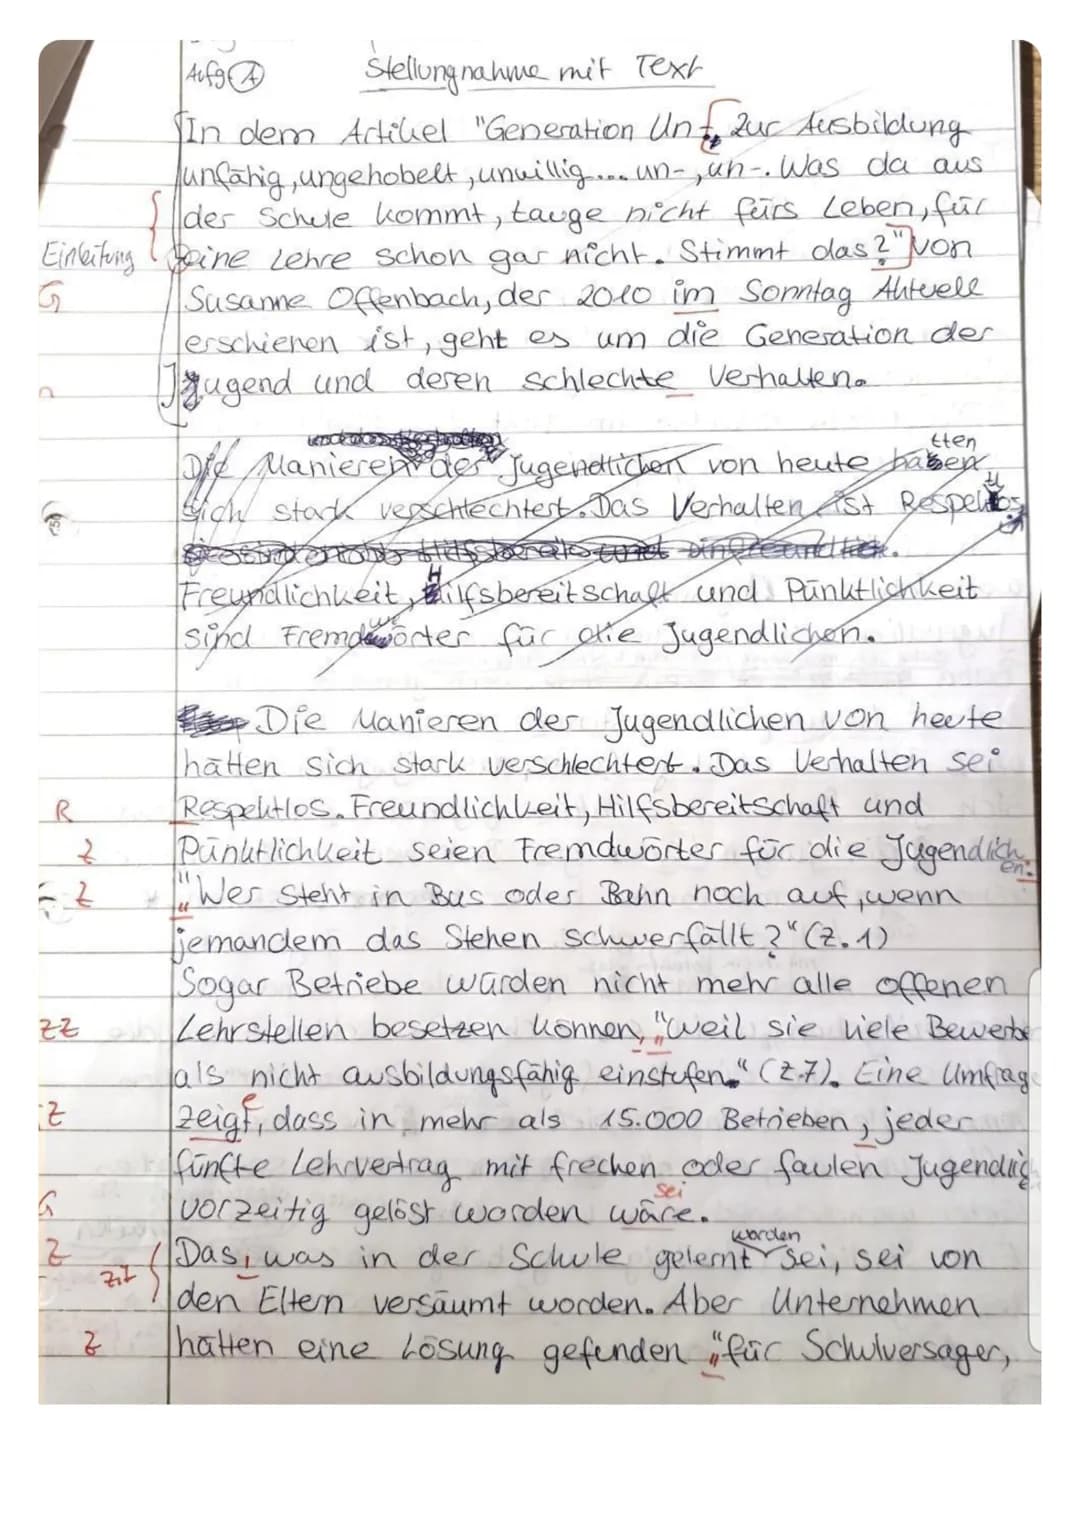 Aufg A Stellungnahme mit Text
In dem Artikel "Generation Un-, Zur Ausbildung
unfähig, ungehobelt, unwillig... un-, un-. Was da aus
der Schule kommt, tauge nicht fürs Leben, für
Einleitung eine Lehre schon gar nicht. Stimmt das?" von
G Susanne Offenbach, der 2010 im Sonntag Aktuell
erschienen ist, geht es um die Generation der
n Jugend und deren schlechte Verhalten.
tten
Die Manieren der Jugendlichen von heute haben
sich stark verschlechtert. Das Verhalten ist Respektlos
Freundlichkeit, Hilfsbereitschaft und Pünktlichkeit
sind Fremdwörter für die Jugendlichen.
Die Manieren der Jugendlichen von heute
hätten sich stark verschlechtert. Das Verhalten sei
R Respektlos. Freundlichkeit, Hilfsbereitschaft und
Z Pünktlichkeit seien Fremdwörter für die Jugendlichen.
Z "Wer steht in Bus oder Bahn noch auf, wenn
jemandem das Stehen schwerfällt?" (Z. 1)
Sogar Betriebe würden nicht mehr alle offenen
ZZ Lehrstellen besetzen können, "weil sie viele Bewerbe
als nicht ausbildungsfähig einstufen." (Z.7). Eine Umfrage
Z zeigt, dass in mehr als 15.000 Betrieben, jeder
fünfte Lehrvertrag mit frechen oder faulen Jugendlic
sei
G vorzeitig gelöst worden wäre.
worden
Z Das, was in der Schule gelernt sei, sei von
Zit den Eltern versäumt worden. Aber Unternehmen
Z hätten eine Lösung gefunden "für Schulversager,